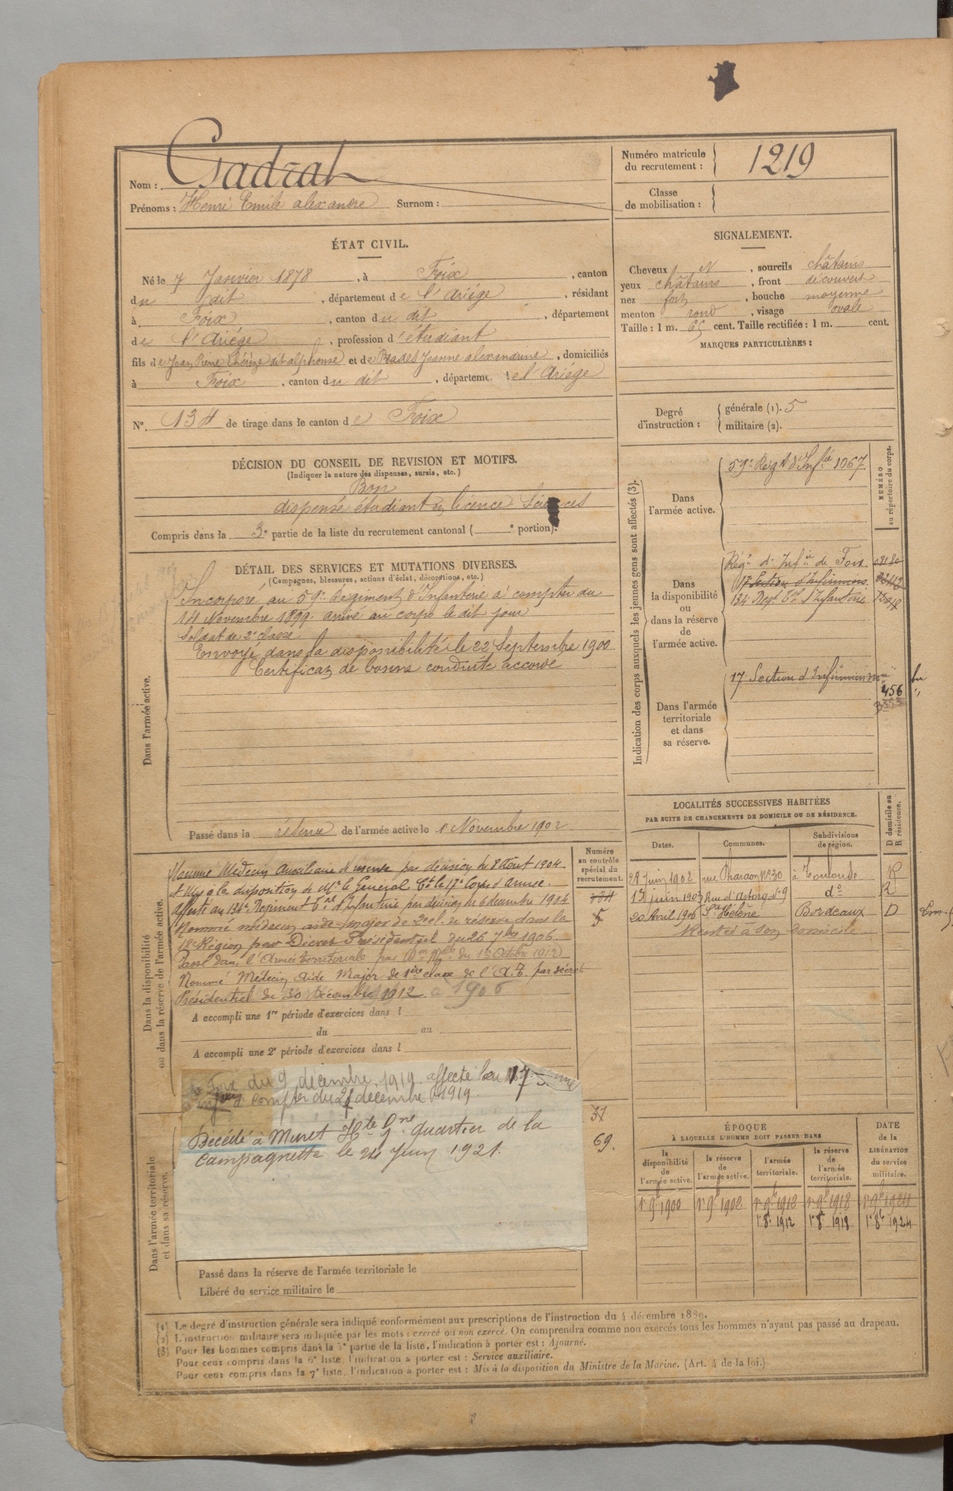 Nom : Cadrat
Prénoms : Henri Emile alexandre Surnom :
Numéro matricule du recrutement : 1219
Classe de mobilisation :
ÉTAT CIVIL.
Né le 7 Janvier 1878, à Foix, canton
du dit, département de l'Ariége, résidant
à Foix, canton du dit, département
de l'Ariége, profession d'étudiant
fils de Jean Pierre dit alphonse et de Prades Jeanne alexandrine, domiciliés
à Foix, canton du dit, département de l'Ariége
No. 134 de tirage dans le canton de Foix
SIGNALEMENT.
Cheveux et, sourcils châtains
yeux châtains, front découvert
nez fort, bouche moyenne
menton rond, visage ovale
Taille : 1 m. 65 cent. Taille rectifiée : 1 m. cent.
MARQUES PARTICULIÈRES :
Degré d'instruction : générale (1). 5
militaire (2).
DÉCISION DU CONSEIL DE REVISION ET MOTIFS.
(Indiquer la nature des dispenses, sursis, etc.)
Bon
dispensé étudiant licence Sciences
Compris dans la 3e partie de la liste du recrutement cantonal ( e portion).
DÉTAIL DES SERVICES ET MUTATIONS DIVERSES.
(Campagnes, blessures, actions d'éclat, décorations, etc.)
Dans l'armée active.
Incorporé au 59e Régiment d'Infanterie à compter du
14 Novembre 1899. arrivé au corps le dit jour
Soldat de 2e classe
Envoyé dans la disponibilité le 22 Septembre 1900
Certificat de bonne conduite accordé
Passé dans la réserve de l'armée active le 1 Novembre 1902
Indication des corps auxquels les jeunes gens sont affectés (3).
NUMÉRO au répertoire du corps.
Dans l'armée active.
59e Régt d'Infie 1067
Dans la disponibilité ou dans la réserve de l'armée active.
Régt d'Infie de Foix
17 Section d'infirmiers
134 Régt d'Infanterie
Dans l'armée territoriale et dans sa réserve.
17 Section d'Infirmiers
456
LOCALITÉS SUCCESSIVES HABITÉES
PAR SUITE DE CHANGEMENTS DE DOMICILE OU DE RÉSIDENCE.
Dates. Communes. Subdivisions de région. D domicile ou R résidence.
28 juin 1902 rue Pharaon No 30 à Toulouse R
1er juin 1903 Rue d'astorg no 9 do R
20 Avril 1906 Ste Hélène Bordeaux D
Numéro au contrôle spécial du recrutement.
Dans la disponibilité ou dans la réserve de l'armée active.
Nommé Médecin Auxiliaire de réserve par décision du 8 Août 1904
et mis à la disposition de Mr le Général Ct le 17e Corps d'Armée.
affecté au 134e Régiment d'Infanterie par décision du 6 décembre 1904
Nommé médecin aide-major de 2e cl. de réserve dans la
18e Région par Décret Présidentiel du 26 7bre 1906
Passé dans l'Armée territoriale par du 1er Octobre 1912
Nommé Médecin Aide Major de 1ère classe de l'A.T. par décret
Présidentiel du 30 Décembre 1912
A accompli une 1re période d'exercices dans l
du au
A accompli une 2e période d'exercices dans l
du 9 décembre 1919 affecté
compter du decembre 1919
Dans l'armée territoriale et dans sa réserve.
Décédé à Muret Hte Gne quartier de la
Campagnette le 24 Juin 1921.
31
69.
Passé dans la réserve de l'armée territoriale le
Libéré du service militaire le
ÉPOQUE
À LAQUELLE L'HOMME DOIT PASSER DANS
DATE de la LIBÉRATION du service militaire.
la disponibilité de l'armée active. la réserve de l'armée active. l'armée territoriale. la réserve de l'armée territoriale.
1er 9bre 1900 1er 9bre 1902 1er 9bre 1912 1er 9bre 1918 1er 9bre 1924
1er 8bre 1912 1er 8bre 1918 1er 8bre 1924
(1) Le degré d'instruction générale sera indiqué conformément aux prescriptions de l'instruction du 4 décembre 1889.
(2) L'instruction militaire sera indiquée par les mots : exercé ou non exercé. On comprendra comme non exercés tous les hommes n'ayant pas passé au drapeau.
(3) Pour les hommes compris dans la 5e partie de la liste, l'indication à porter est : Ajourné.
Pour ceux compris dans la 6e liste, l'indication à porter est : Service auxiliaire.
Pour ceux compris dans la 7e liste, l'indication à porter est : Mis à la disposition du Ministre de la Marine. (Art. 4 de la loi.)